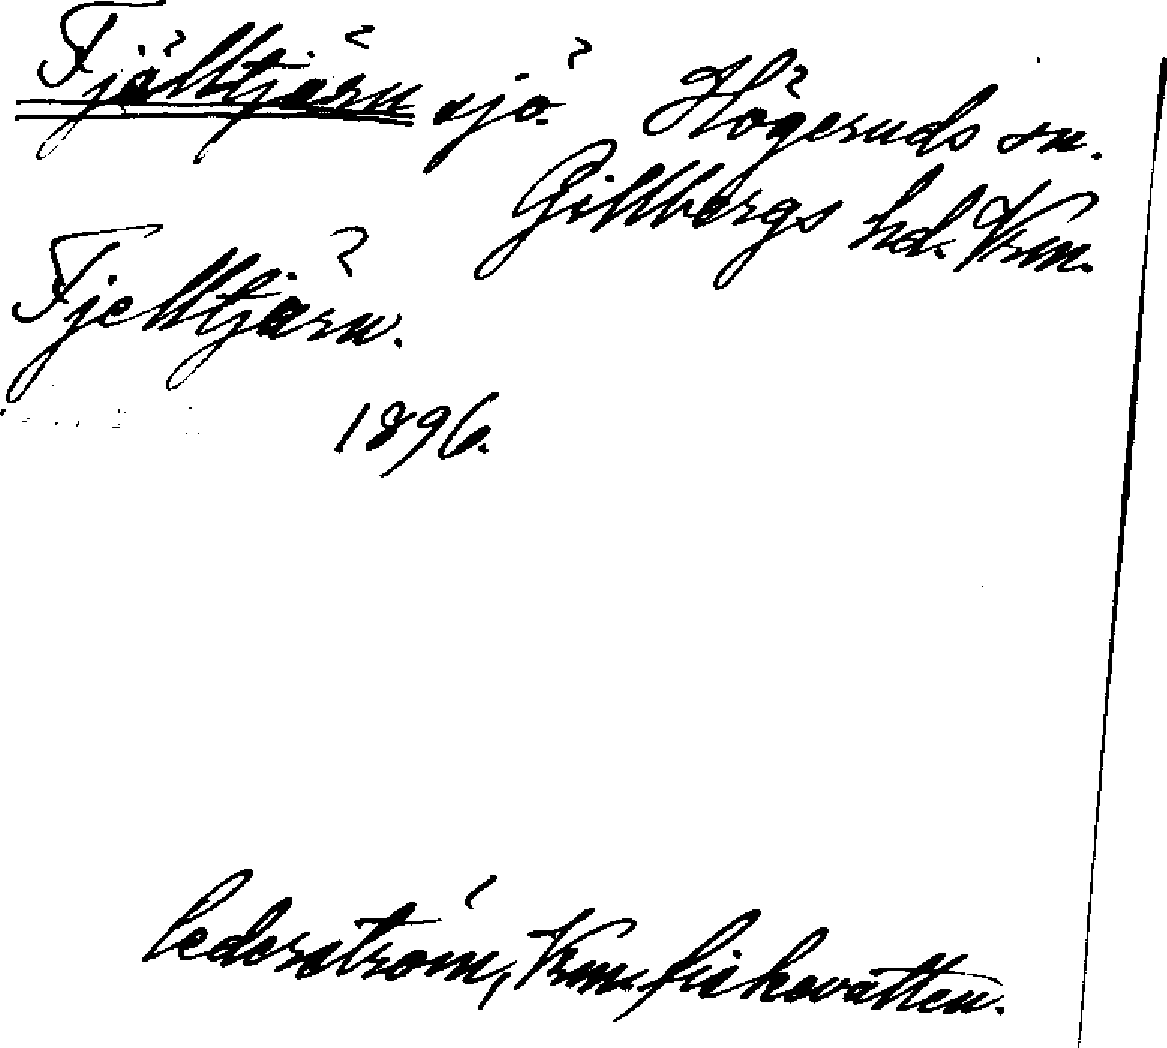 Fjälltjärn sjö. Högeruds sn.
Gillbergs hd. Vrm.
Fjelltjärn.
1896.
Cederström, Vrm. fiskevatten.